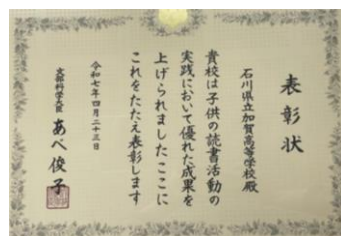 表彰状
石川県立加賀高等学校殿
貴校は子供の読書活動の
実践において優れた成果を
上げられましたここに
これをたたえ表彰します
令和七年四月二十三日
文部科学大臣
あべ俊子